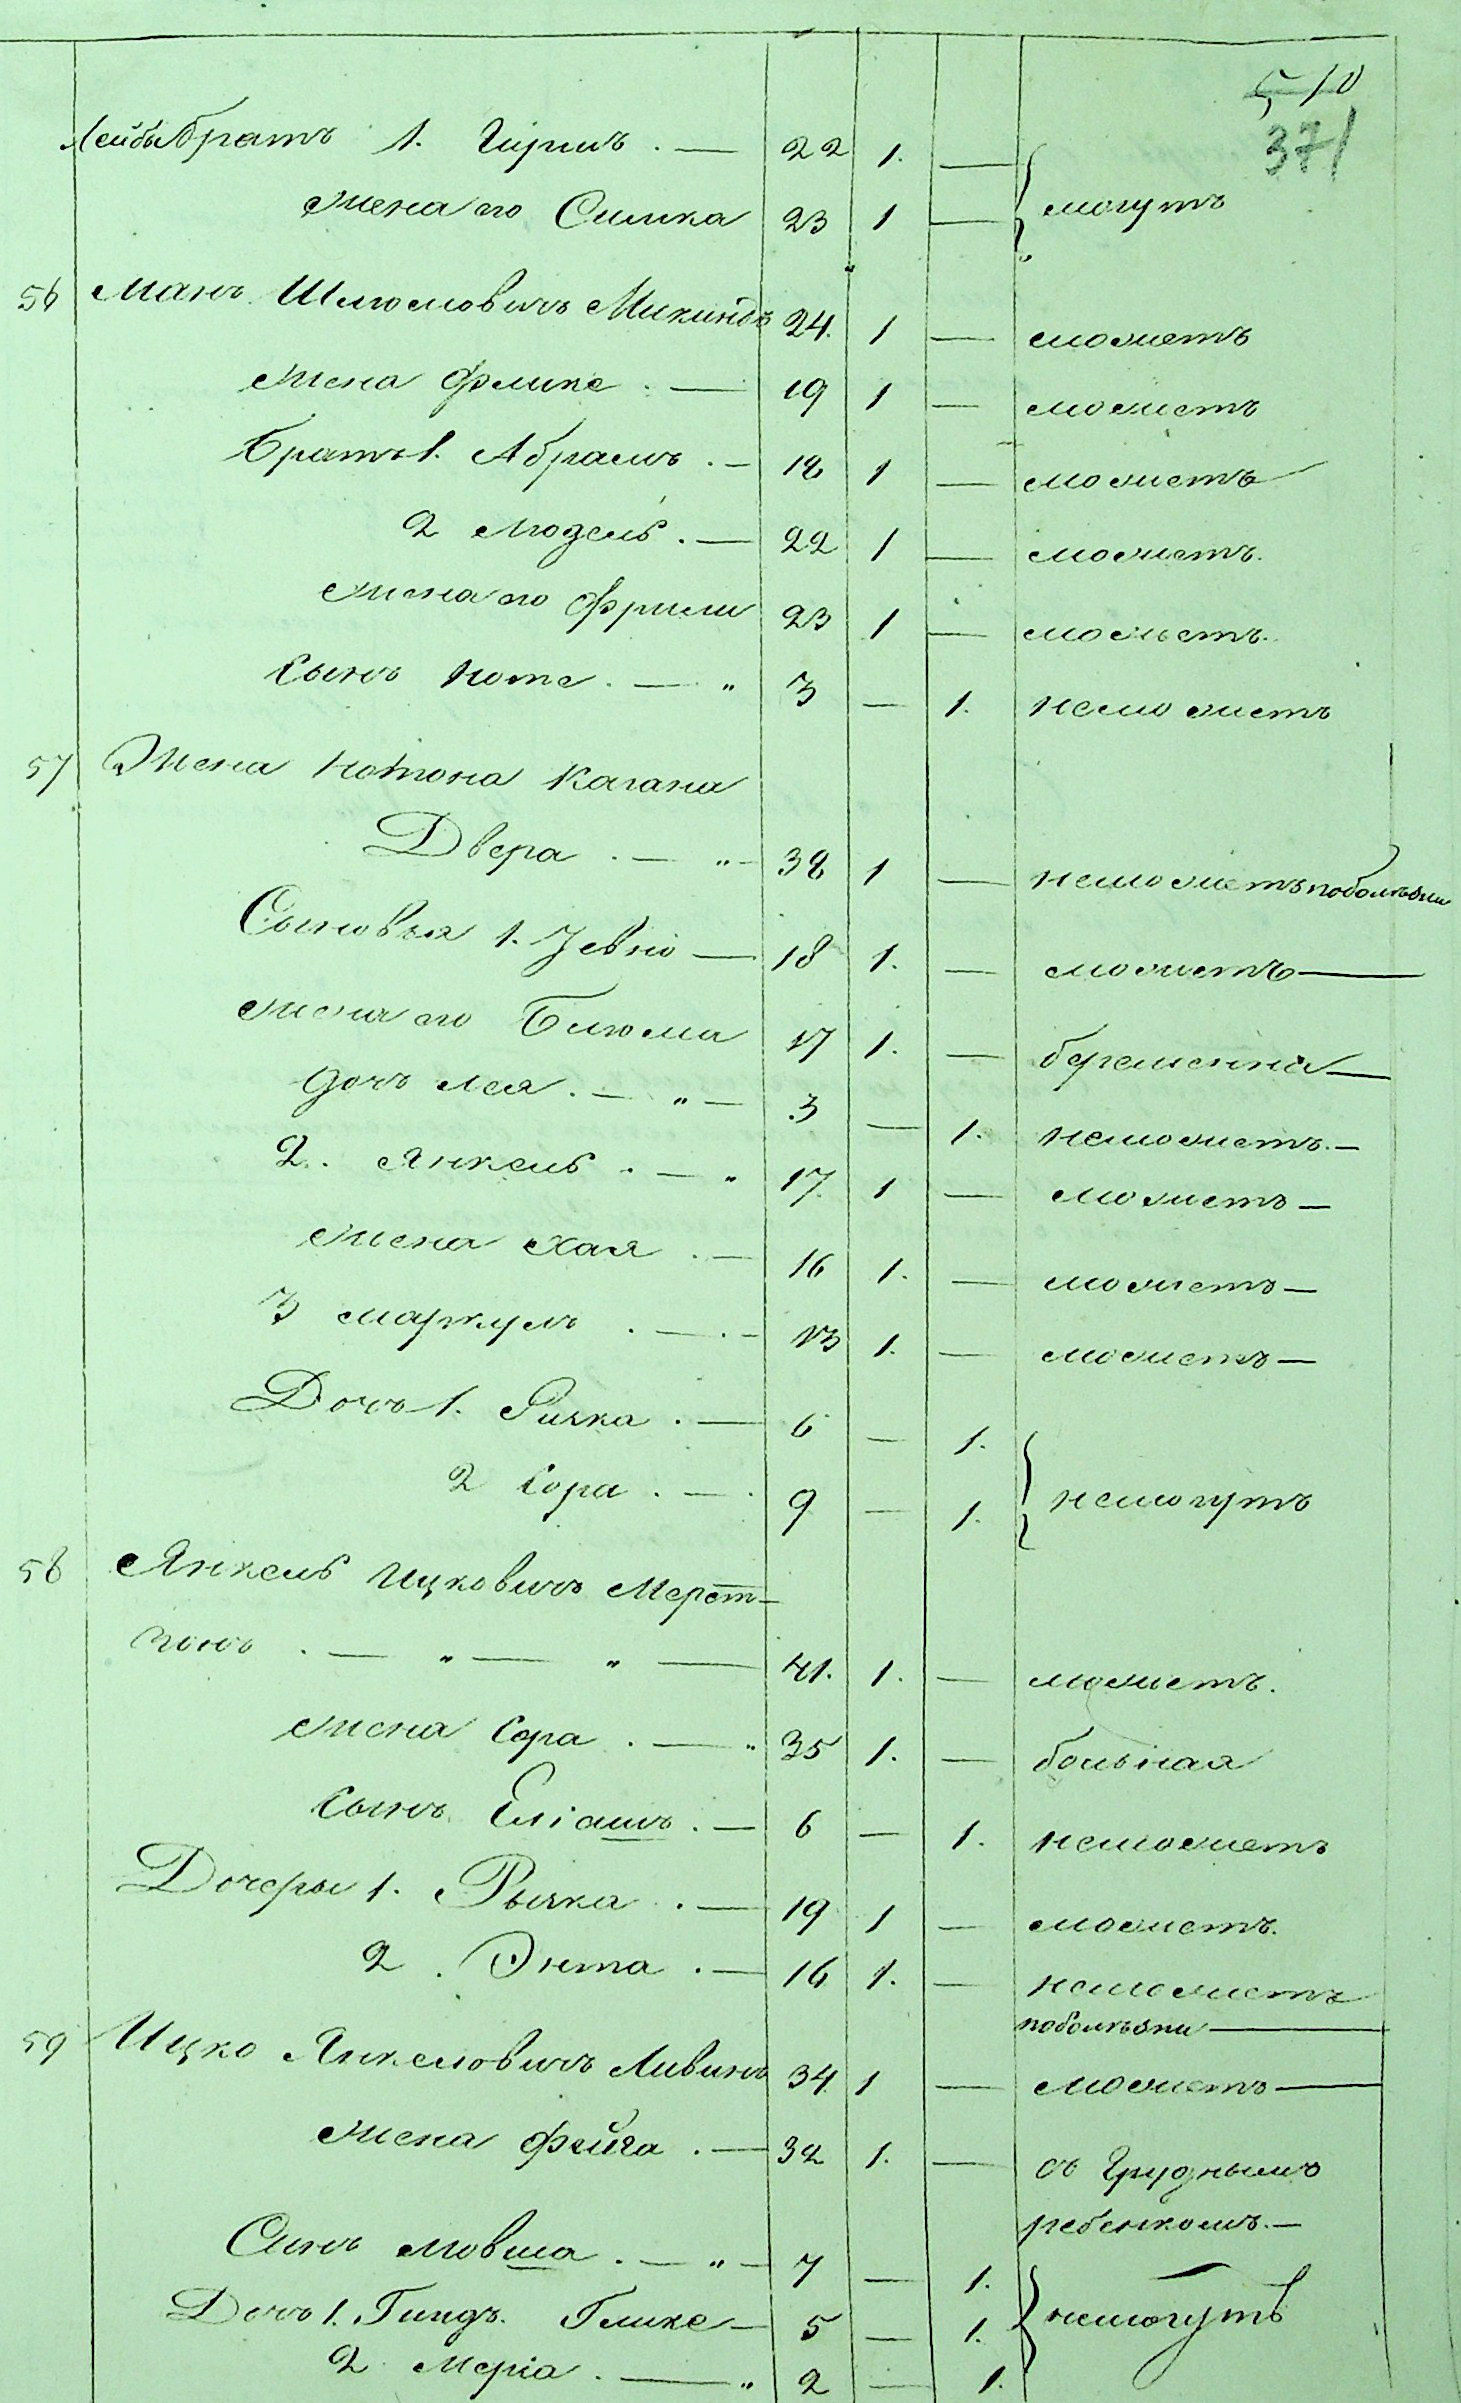 510
371
Лейбы братъ 1. Гиршъ . — 22 1. —
жена его Симка 23 1 — могутъ
56 Манъ Шлюмовичъ Микиндъ 24. 1 — можетъ
жена Фрике . — 19 1 — можетъ
братъ 1. Абрамъ . — 18 1 — можетъ
2 Мозель . — 22 1 — можетъ.
жена его Фрими 23 1 — можетъ.
сынъ Ноте . — " 3 — 1. неможетъ
57 Жена Нотона Кагана
Двера . — " — 38 1 — неможетъ по болѣзни
Сыновья 1. Іевно — 18 1. — можетъ —
жена его Блюма 17 1. — беременна —
дочь Лея . — " — 3 — 1. неможетъ. —
2. Янкель . — " 17. 1 — можетъ —
жена Хая . — 16 1. — можетъ —
3 Маркумъ . — . — 13 1. — можетъ —
Дочь 1. Ришка . — 6 — 1.
2 Сора . — . 9 — 1. немогутъ
58 Янкель Ицковичъ Мерет-
чонъ . — " — " — 41. 1. — можетъ.
жена Сора . — " 35 1. — больная
сынъ Еліашъ . — 6 — 1. неможетъ
Дочеры 1. Рышка . — 19 1 — можетъ.
2 . Энта . — 16 1. — неможетъ
по болѣзни —
59 Ицко Янкелевичъ Ливинъ 34. 1 — можетъ —
жена Фейга . — 32 1. — съ груднымъ
ребенкомъ. —
Сынъ Мовша . — " — 7 — 1.
Дочь 1. Гиндъ. Глике — 5 — 1. немогутъ
2 Меріа . — " 2 — 1.